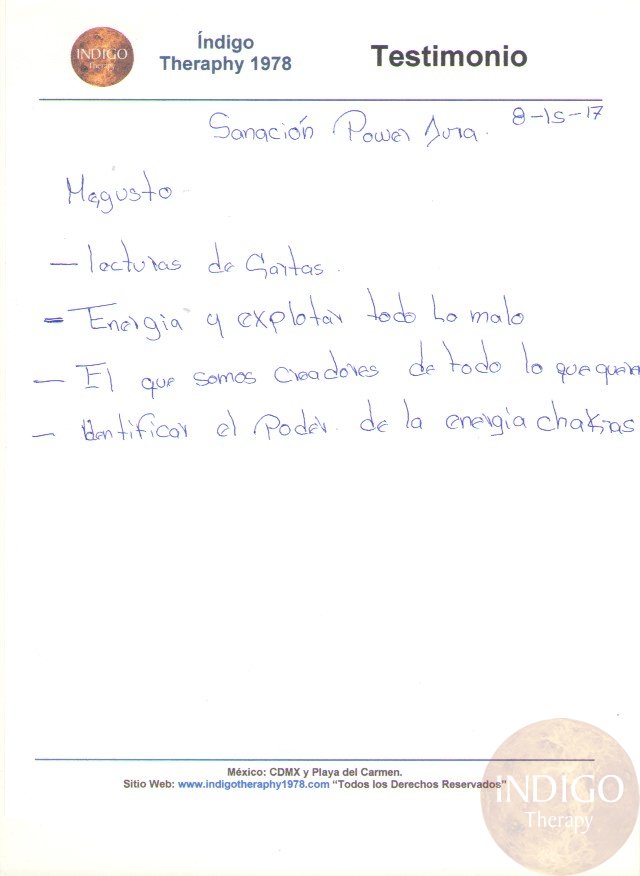 INDIGO
Therapy
Índigo
Theraphy 1978
Testimonio
8-15-17
Sanación Power Aura.
Megusto
- lecturas de Cartas.
- Energia y explotar todo lo malo
- El que somos creadores de todo lo que quere
- Identificar el Poder de la energía chakras
México: CDMX y Playa del Carmen.
Sitio Web: www.indigotheraphy1978.com "Todos los Derechos Reservados"
INDIGO
Therapy